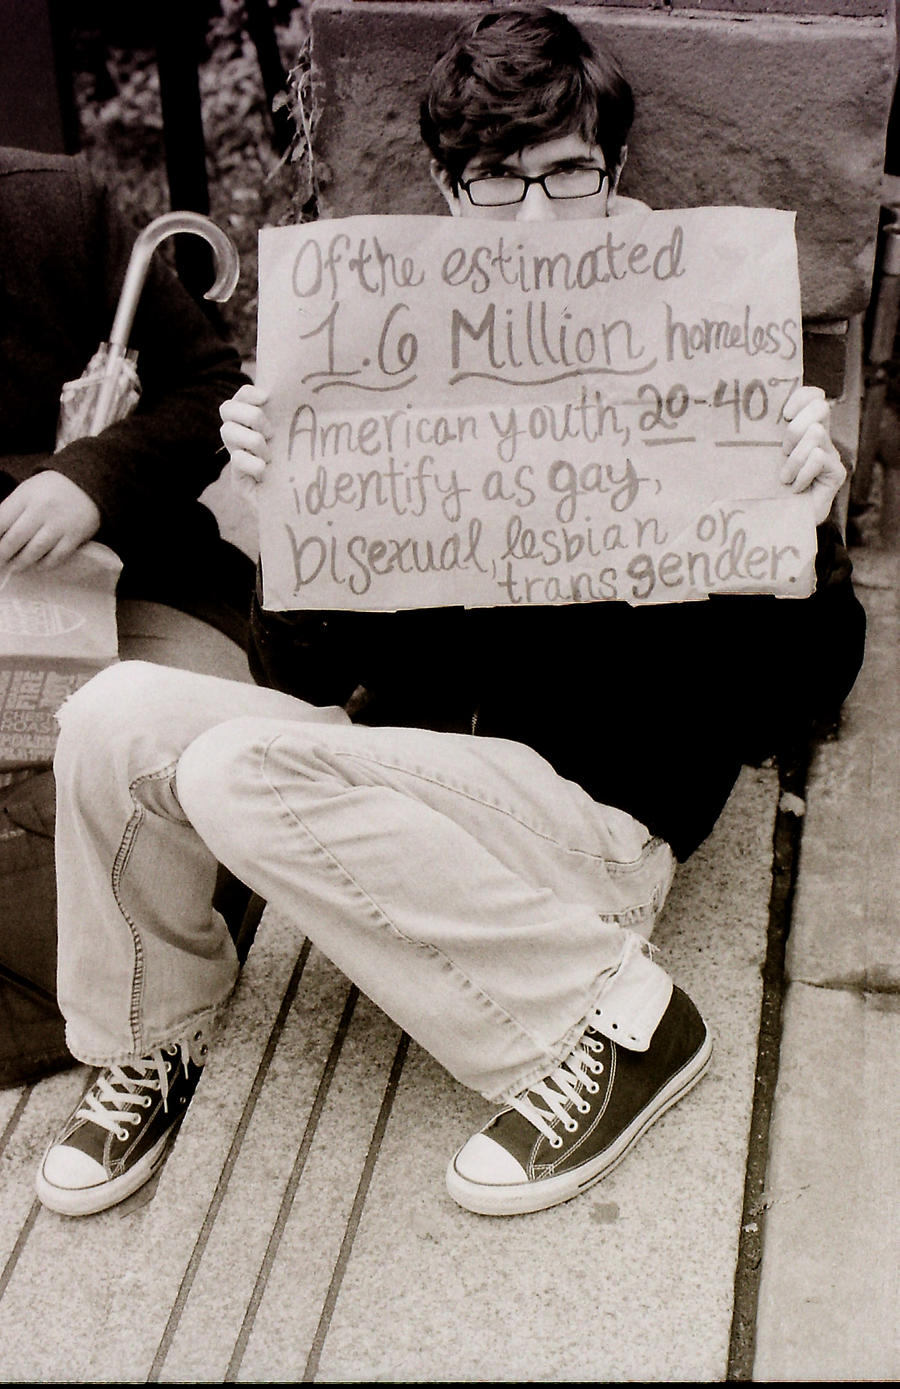 Of the estimated
1.6 Million homeless
American youth, 20-40%
identify as gay,
bisexual, lesbian or
transgender.
FIRE